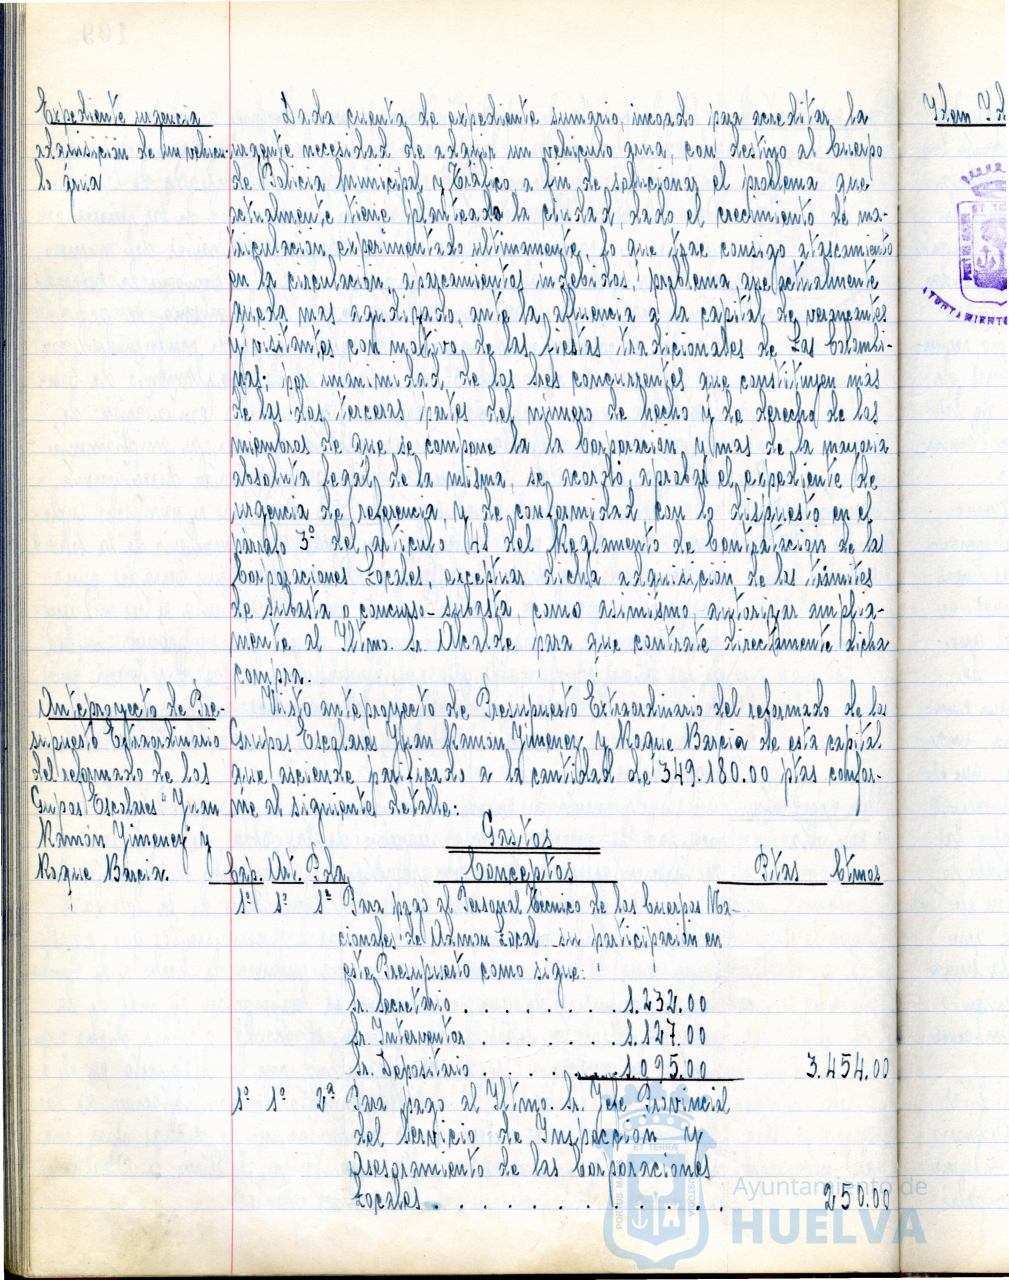 Expediente urgencia
adquisición de un vehícu-
lo grúa
Dada cuenta de expediente sumario, incoado para acreditar la
urgente necesidad de adquirir un vehículo grúa, con destino al Cuerpo
de Policía Municipal y Tráfico, a fin de solucionar el problema que
actualmente tiene planteado la ciudad, dado el crecimiento de ma-
triculación experimentado ultimamente, lo que trae consigo atascamiento
en la circulación, aparcamientos indebidos, problema que actualmente
queda mas agudizado, ante la afluencia a la capital de veraneantes
y visitantes con motivo de las fiestas tradicionales de Las Colombi-
nas; por unanimidad, de los tres concurrentes que constituyen más
de las dos terceras partes del número de hecho y de derecho de los
miembros de que se compone la la Corporación y mas de la mayoria
absoluta legal de la misma, se acordó, aprobar el expediente de
urgencia de referencia, y de conformidad con lo dispuesto en el
párrafo 3º del artículo 48 del Reglamento de Contratación de las
Corporaciones Locales, exceptuar dicha adquisición de los trámites
de subasta o concurso-subasta, como asimismo autorizar amplia-
mente al Iltmo. Sr. Alcalde para que contrate directamente dicha
compra.
Anteproyecto de Pre-
supuesto Extraordinario
del reformado de los
Grupos Escolares Juan
Ramón Jimenez y
Roque Barcia.
Visto anteproyecto de Presupuesto Extraordinario del reformado de los
Grupos Escolares Juan Ramón Jimenez y Roque Barcia de esta capital
que asciende a la cantidad de 349.180.00 ptas confor-
me al siguiente detalle:
Gastos
Cap. Art. Pda. Conceptos Ptas Ctmos
1º 1º 1ª Para pago al Personal Técnico de los Cuerpos Na-
cionales de Admon Local su participación en
este Presupuesto como sigue:
Sr. Secretario . . . . . . . . . 1.232.00
Sr. Interventor . . . . . . . . 1.127.00
Sr. Depositario . . . . . . . . 1.095.00 3.454.00
1º 1º 2ª Para pago al Iltmo. Sr. Jefe Provincial
del Servicio de Inspección y
Asesoramiento de las Corporaciones
Locales . . . . . . . . . . . . 250.00
Idem
AYUNTAMIENTO
Ayuntamiento de
HUELVA